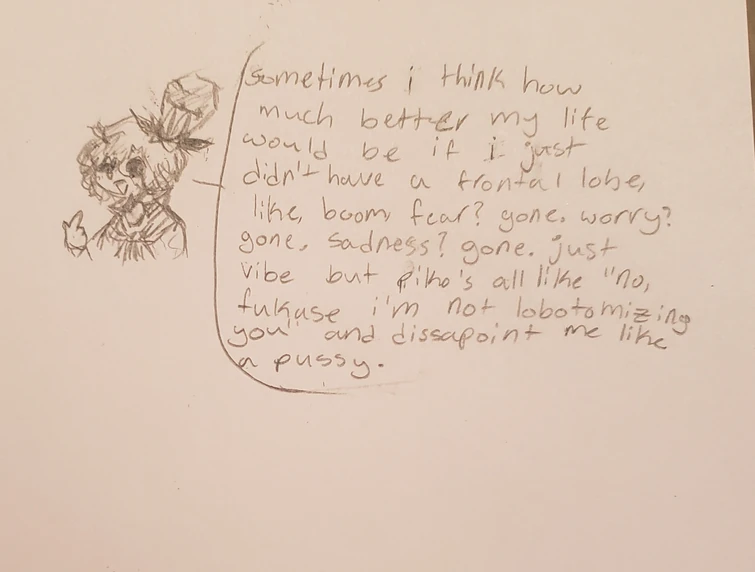 sometimes i think how
much better my life
would be if i just
didn't have a frontal lobe,
like, boom, fear? gone. worry?
gone. sadness? gone. just
vibe but piko's all like "no,
fukase i'm not lobotomizing
you" and dissapoint me like
a pussy.